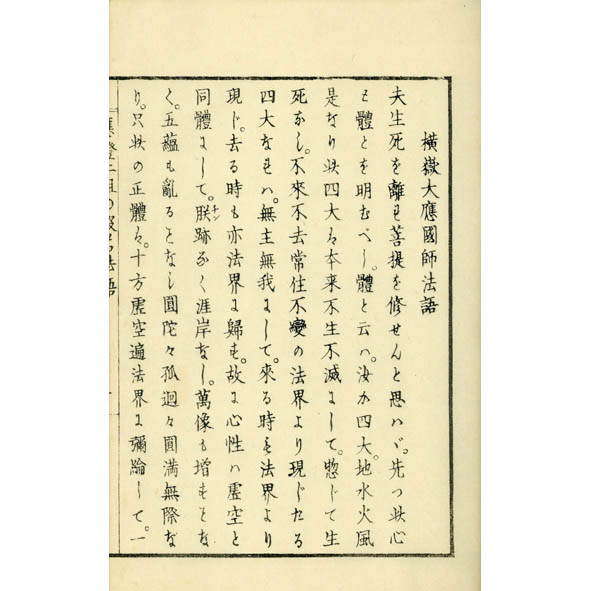 横嶽大應國師法語
夫生死を離れ菩提を修せんと思ハヾ。先つ此心
と體とを明むべし。體と云ハ。汝か四大。地水火風
是なり此四大は本来不生不滅にして。惣じて生
死なし。不來不去常住不變の法界より現じたる
四大なれハ。無主無我にして。來る時も法界より
現じ。去る時も亦法界に歸す。故に心性ハ虚空と
同體にして。朕跡なく涯岸なし。萬像も増すとな
く。五蘊も亂るとなし圓陀々孤迥々圓満無際な
り。只此の正體は。十方虚空遍法界に彌綸して。一